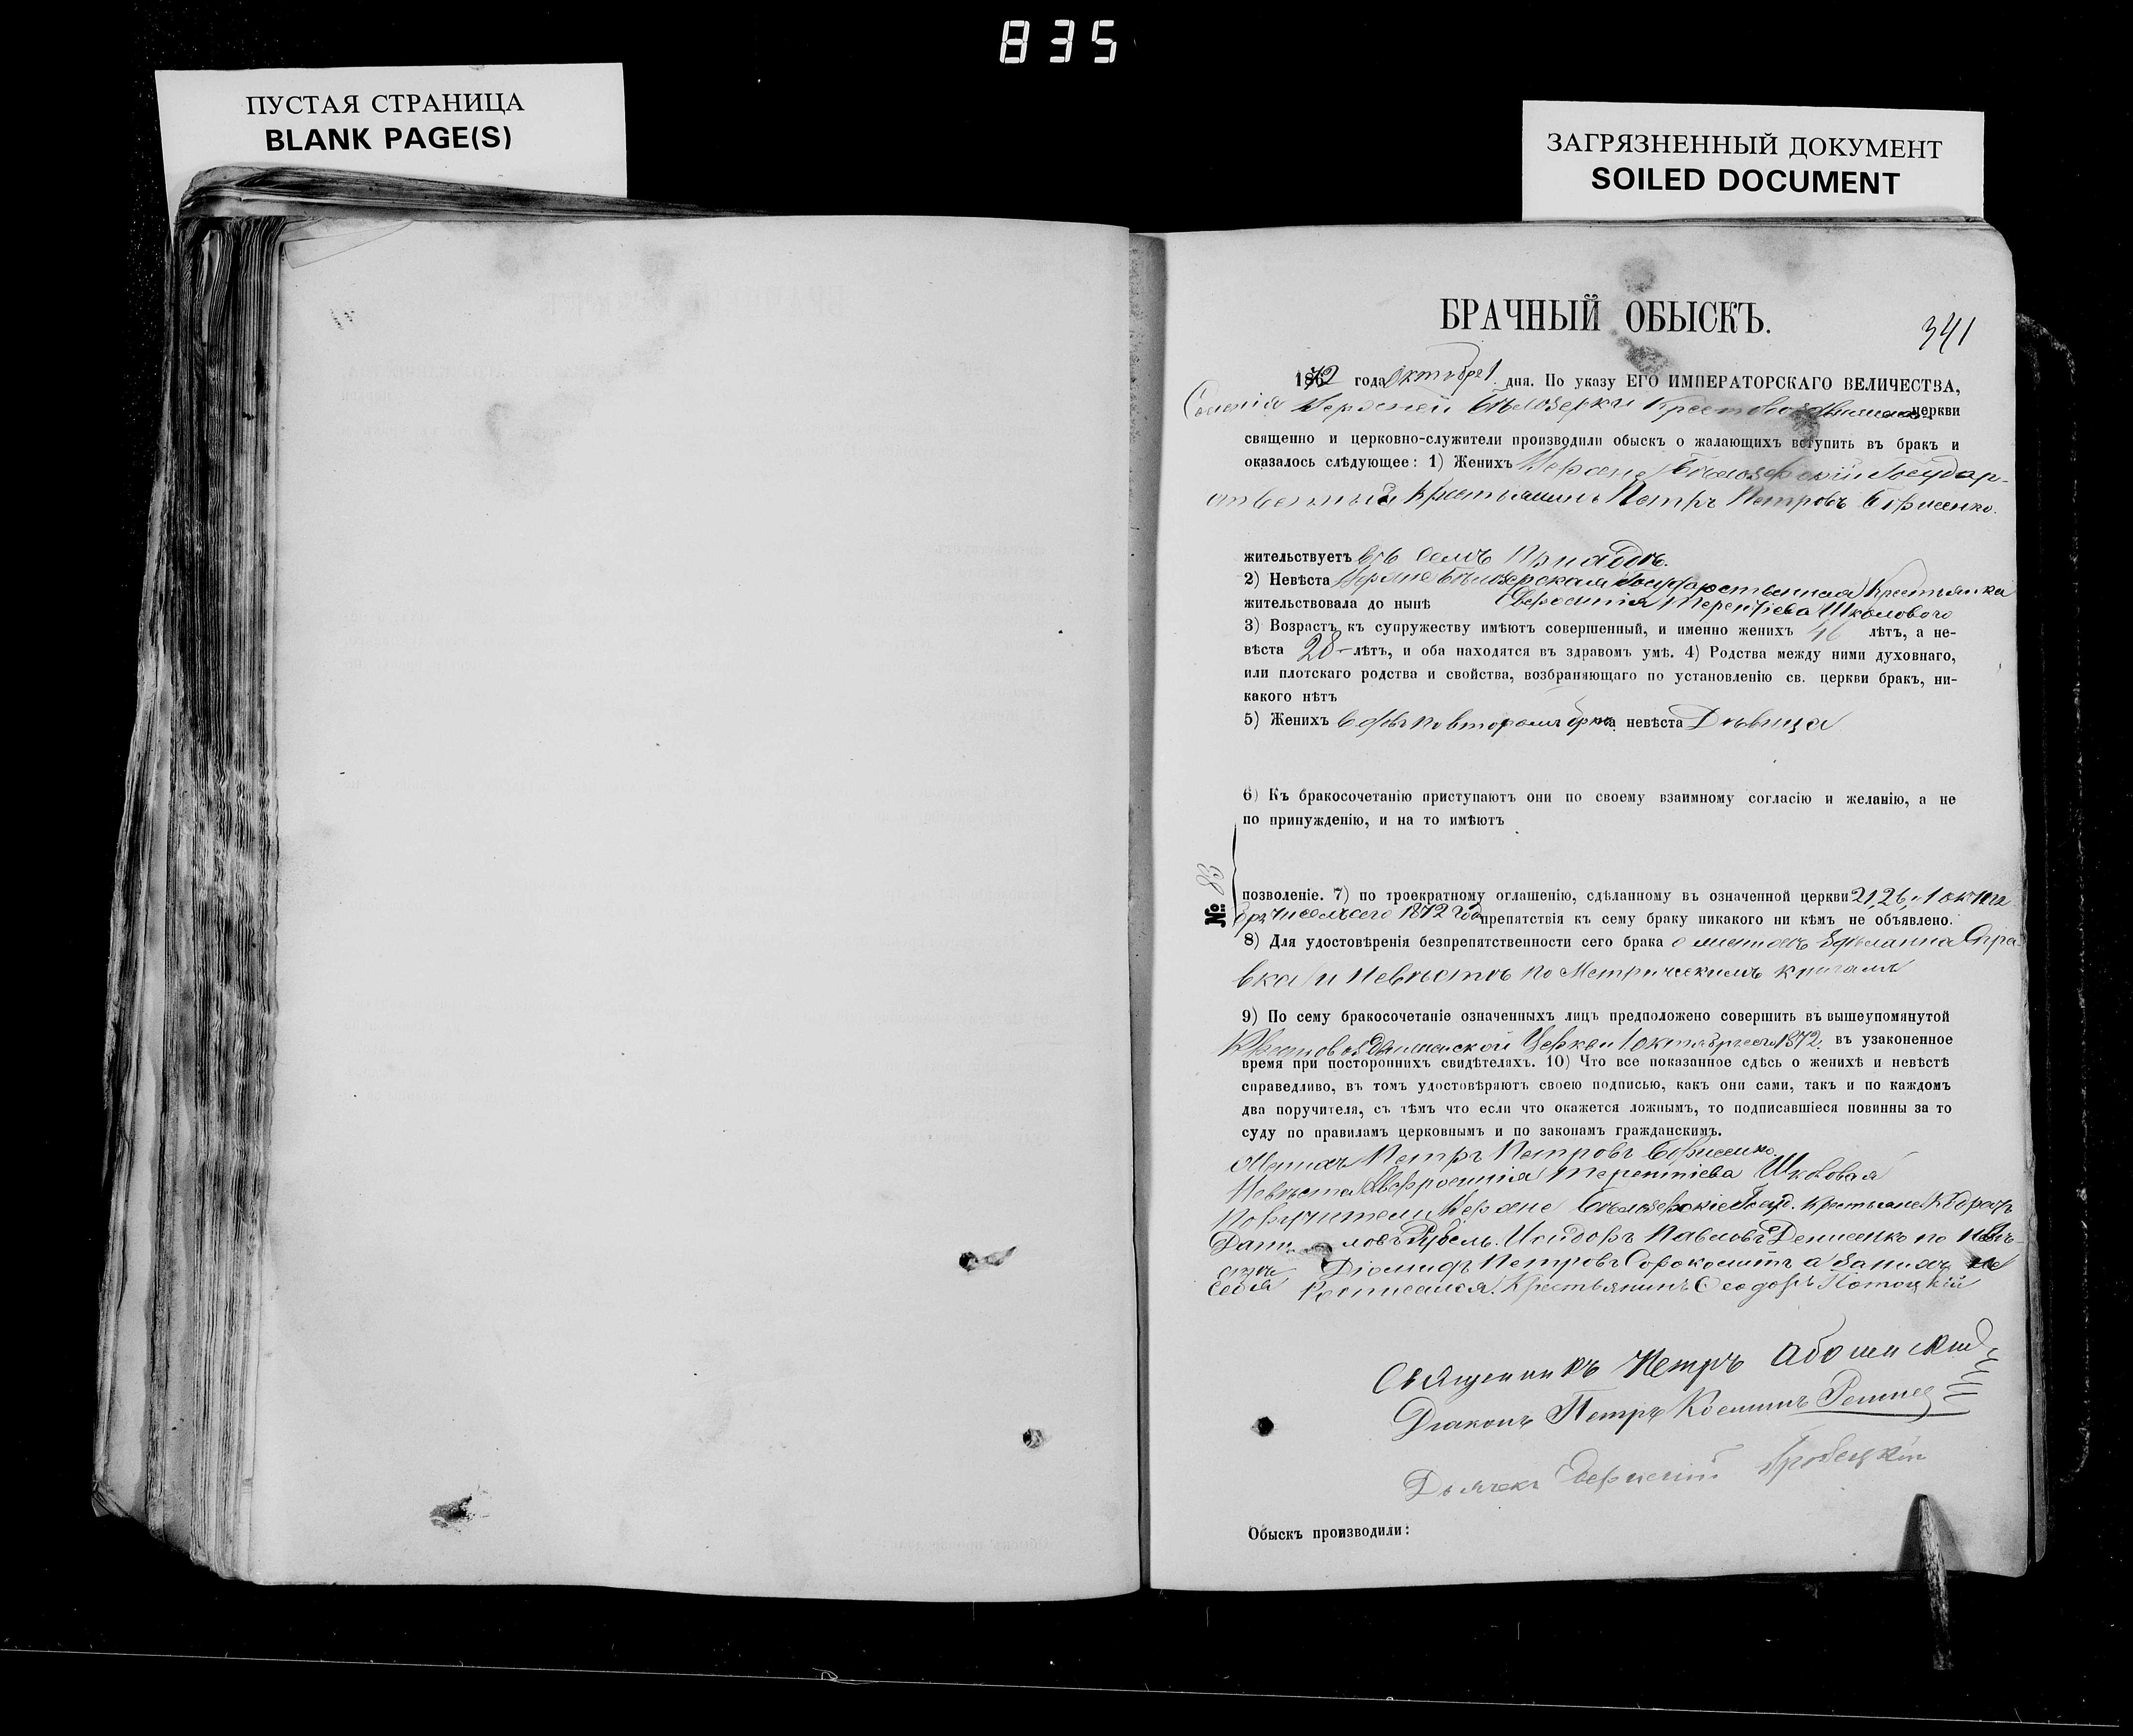 835
ПУСТАЯ СТРАНИЦА
BLANK PAGE(S)
ЗАГРЯЗНЕННЫЙ ДОКУМЕНТ
SOILED DOCUMENT
БРАЧНЫЙ ОБЫСКЪ.
341
1872 года Октября 1 дня. По указу ЕГО ИМПЕРАТОРСКАГО ВЕЛИЧЕСТВА,
Селенія Верхней Бѣлозерки Крестовоздвиженской церкви
священно и церковно-служители производили обыскъ о жалающихъ вступить въ бракъ и
оказалось слѣдующее: 1) Женихъ Верхне Бѣлозерскій Государ-
ственный Крестьянинъ Петръ Петровъ Борисенко.
жительствуетъ въ семъ Приходѣ.
2) Невѣста Верхне Бѣлозерская Государственная Крестьянка
жительствовала до нынѣ Евфросинія Терентіева Школового
3) Возрастъ къ супружеству имѣютъ совершенный, и именно женихъ 46 лѣтъ, а не-
вѣста 28 лѣтъ, и оба находятся въ здравомъ умѣ. 4) Родства между ними духовнаго,
или плотскаго родства и свойства, возбраняющаго по установленію св. церкви бракъ, ни-
какого нѣтъ
5) Женихъ вдовъ по второмъ бракѣ невѣста Дѣвица
6) Къ бракосочетанію приступаютъ они по своему взаимному согласію и желанію, а не
по принужденію, и на то имѣютъ
№ 83
позволеніе. 7) по троекратному оглашенію, сдѣланному въ означенной церкви 21, 26, и 1 октя
бря чиселъ сего 1872 года препятствія къ сему браку никакого ни кѣмъ не объявлено.
8) Для удостовѣренія безпрепятственности сего брака о женихѣ здѣланна Спра-
вка и невѣстѣ по Метрическимъ книгамъ
9) По сему бракосочетаніе означенныхъ лицъ предположено совершить въ вышеупомянутой
Крестовоздвиженской Церкви 1 октября сего 1872 въ узаконенное
время при постороннихъ свидѣтеляхъ. 10) Что все показанное сдѣсь о женихѣ и невѣстѣ
справедливо, въ томъ удостовѣряютъ своею подписью, какъ они сами, такъ и по каждомъ
два поручителя, съ тѣмъ что если что окажется ложнымъ, то подписавшіеся повинны за то
суду по правиламъ церковнымъ и по законамъ гражданскимъ.
Женихъ Петръ Петровъ Борисенко.
Невѣста Евфросинія Терентіева Школовая
Поручители Верхне Бѣлозерскіе Госуд. Крестьяне
Исидоръ Павловъ Денисенко по невѣ-
стѣ Діомидъ Петровъ а за нихъ и
себя Росписался Крестьянинъ Ѳеодоръ Потоцкій
Священникъ Петръ
Діаконъ Петръ
Дьячекъ
Обыскъ производили: